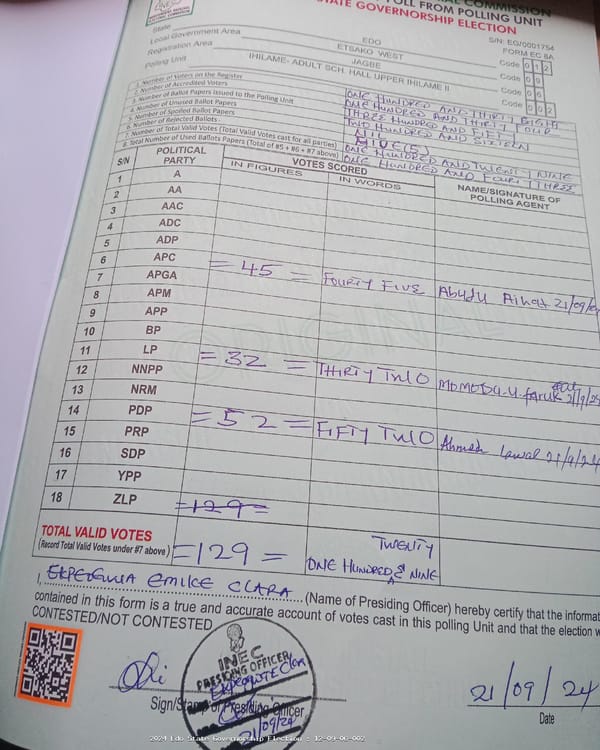 COMMISSION
OLL FROM POLLING UNIT
STATE GOVERNORSHIP ELECTION
S/N: EG/0001754
FORM EC 8A
State EDO Code 12
Local Government Area ETSAKO WEST Code
Registration Area JAGBE Code 06
Polling Unit IHILAME- ADULT SCH. HALL UPHER IHILAME II Code 002
1. Number of Voters on the Register ONE HUNDRED AND THIRTY EIGHT
2. Number of Accredited Voters ONE HUNDRED AND THIRTY FOUR
3. Number of Ballot Papers Issued to the Polling Unit THREE HUNDRED AND FIFTY
4. Number of Unused Ballot Papers TWO HUNDRED AND SIXTEEN
5. Number of Spoiled Ballot Papers NIL
6. Number of Rejected Ballots FIVE (5)
7. Number of Total Valid Votes (Total Valid Votes cast for all parties) ONE HUNDRED AND TWENTY NINE
8. Total Number of Used Ballots Papers (Total of #5 + #6 + #7 above) ONE HUNDRED AND FOURTY THREE
S/N POLITICAL PARTY VOTES SCORED NAME/SIGNATURE OF POLLING AGENT
IN FIGURES IN WORDS
1 A
2 AA
3 AAC
4 ADC
5 ADP
6 APC = 45 = FOURTY FIVE Abudu 21/09/
7 APGA
8 APM
9 APP
10 BP
11 LP = 32 = THIRTY TWO MOMODU.U. FARUK 21/9/24
12 NNPP
13 NRM
14 PDP = 52 = FIFTY TWO Ahmed Lawal 21/9/24
15 PRP
16 SDP
17 YPP
18 ZLP =129=
TOTAL VALID VOTES
(Record Total Valid Votes under #7 above) =129= ONE HUNDRED & TWENTY NINE
ORIGINAL
I, EKPEOGUVA EMIKE CLARA (Name of Presiding Officer) hereby certify that the informat
contained in this form is a true and accurate account of votes cast in this polling Unit and that the election w
CONTESTED/NOT CONTESTED
INEC
PRESIDING OFFICER
21/09/24
Sign/Stamp of Presiding Officer
21/09/24
Date
2024 Edo State Governorship Election : 12-09-06-002